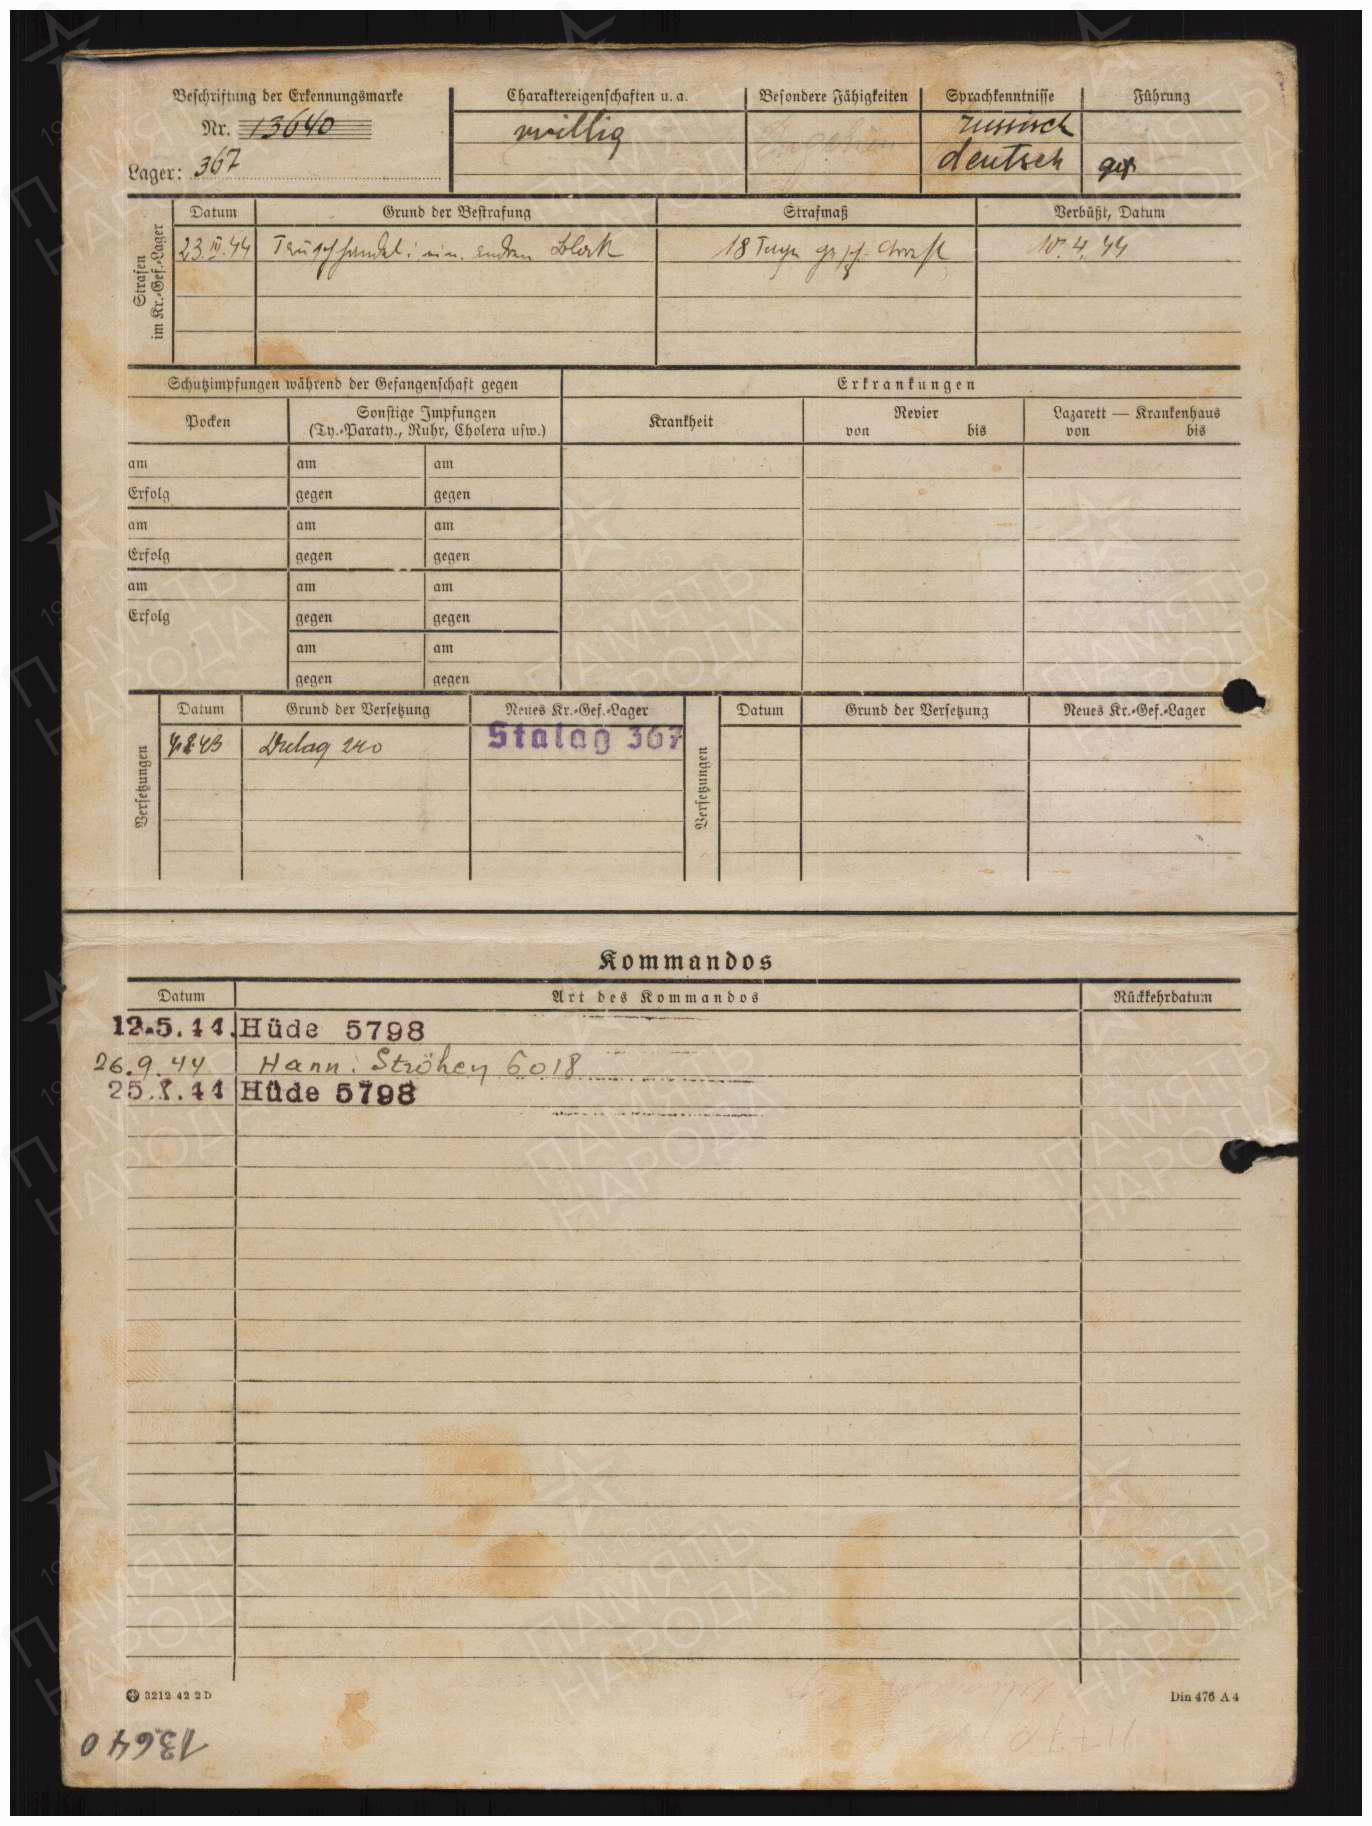 Beschriftung der Erkennungsmarke
Nr. 13640
Lager: 367
Charaktereigenschaften u. a.
willig
Besondere Fähigkeiten
Sprachkenntnisse
russisch
deutsch
Führung
gut
Strafen im Kr.-Gef.-Lager
Datum Grund der Bestrafung Strafmaß Verbüßt, Datum
23. III. 44 Tauschhandel i. einem andren Block 18 Tage gesch. Arrest 10. 4. 44
Schutzimpfungen während der Gefangenschaft gegen
Erkrankungen
Pocken
Sonstige Impfungen
(Ty.-Paraty., Ruhr, Cholera usw.)
Krankheit
Revier
von bis
Lazarett — Krankenhaus
von bis
am am am
Erfolg gegen gegen
am am am
Erfolg gegen gegen
am am am
Erfolg gegen gegen
am am
gegen gegen
Versetzungen
Datum Grund der Versetzung Neues Kr.-Gef.-Lager
Dulag 240 Stalag 367
Versetzungen
Datum Grund der Versetzung Neues Kr.-Gef.-Lager
Kommandos
Datum Art des Kommandos Rückkehrdatum
12.5.44. Hüde 5798
26.9.44 Hann. Ströhen 6018
Hüde 5798
3212 42 2 D
Din 476 A 4
13640
ПАМЯТЬ
НАРОДА